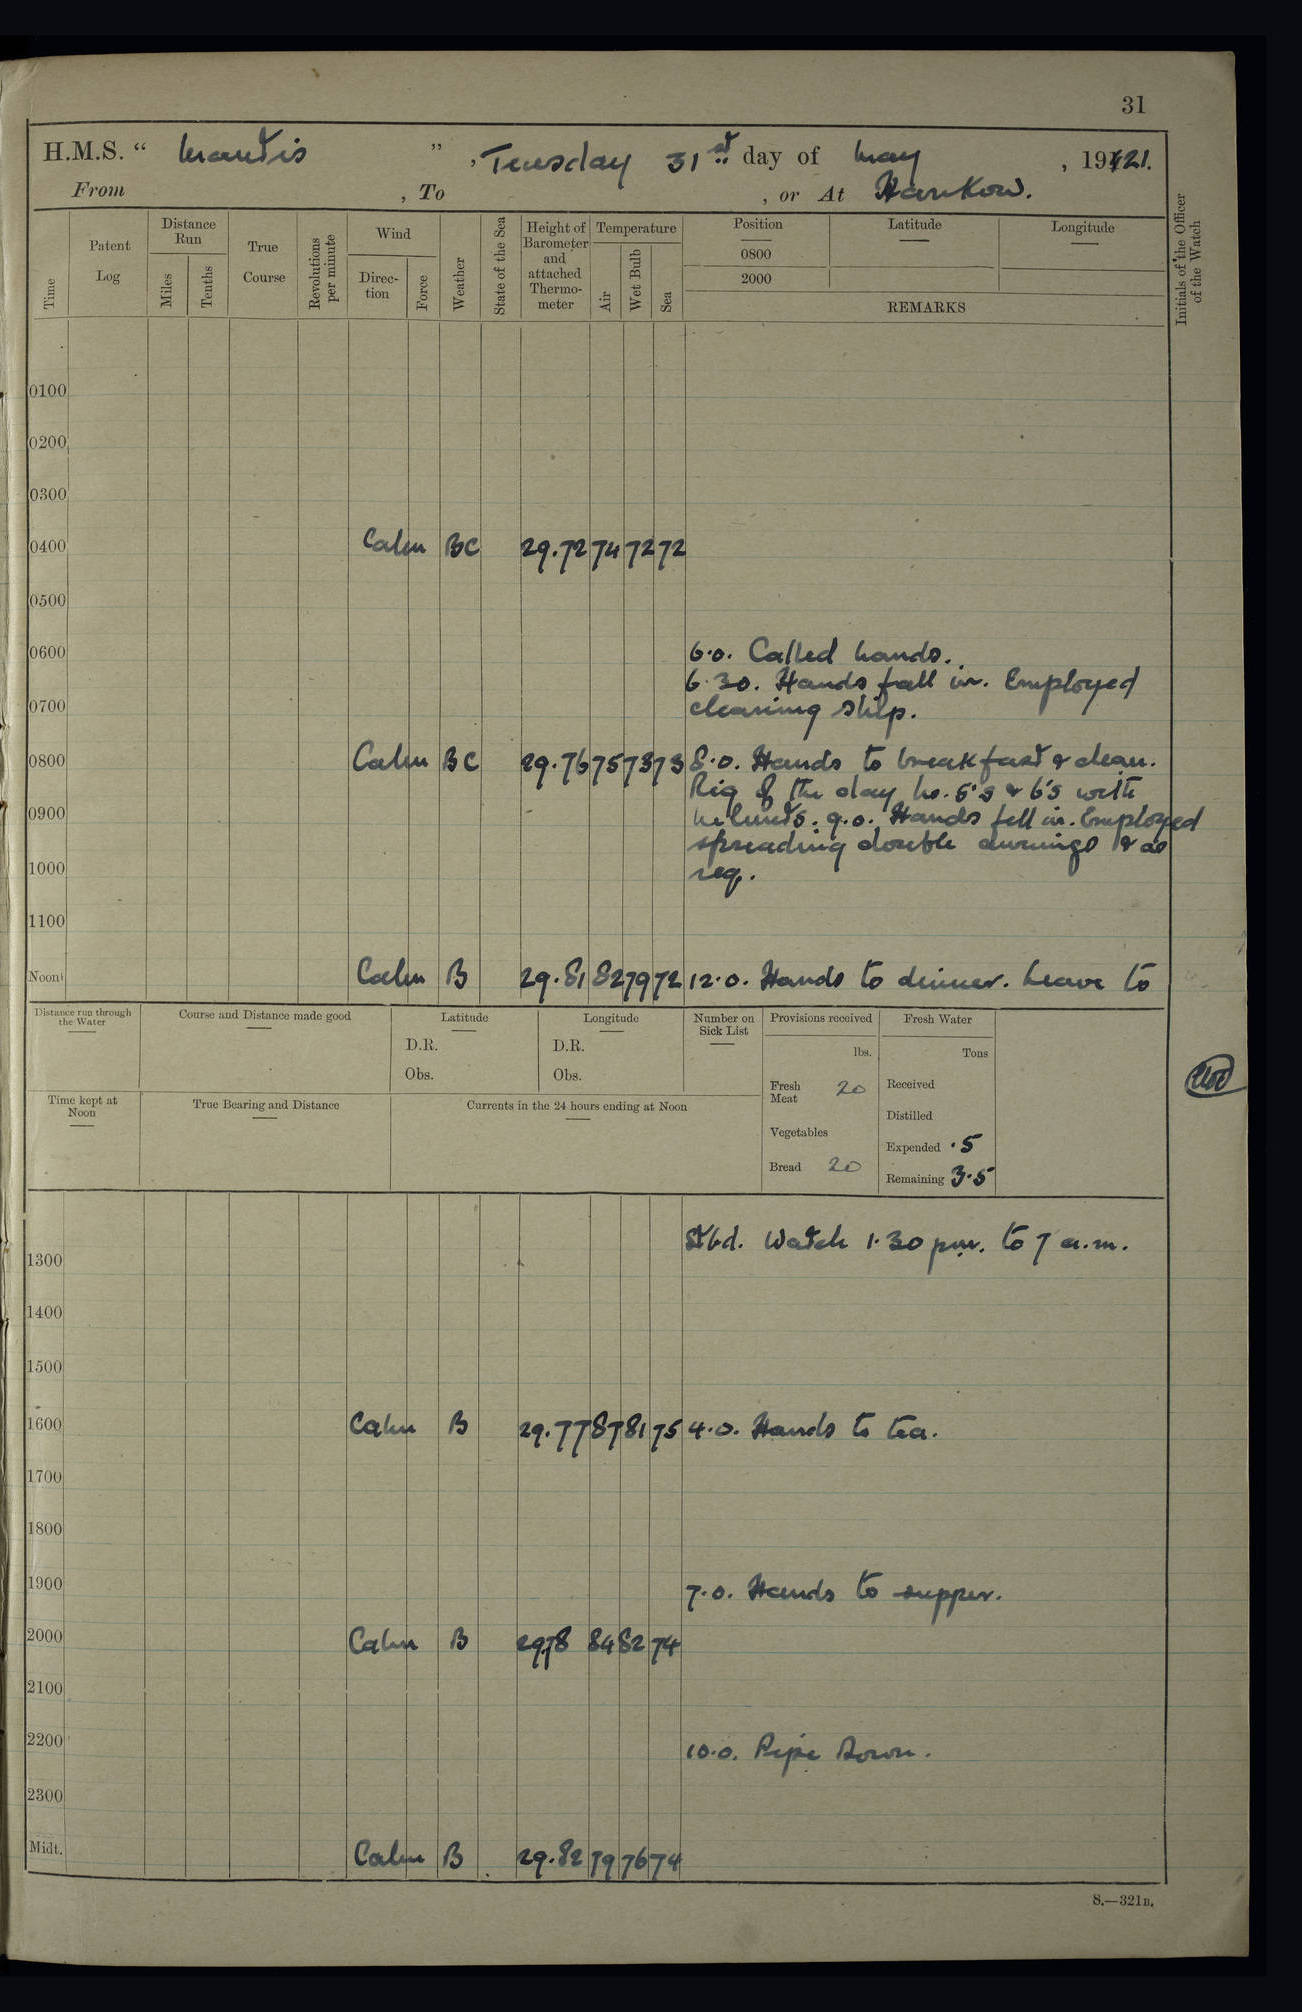 31
H.M.S. “ Mantis ” , Tuesday 31st day of May , 1921.
From , To , or At Hankow.
Time
Patent Log
Distance Run
Miles
Tenths
True Course
Revolutions per minute
Wind
Direction
Force
Weather
State of the Sea
Height of Barometer and attached Thermometer
Temperature
Air
Wet Bulb
Sea
Position Latitude Longitude
0800
2000
REMARKS
Initials of the Officer of the Watch
0100
0200
0300
0400 Calm BC 29.72 74 72 72
0500
0600 6.0. Called hands.
6.30. Hands fall in. Employed
0700 cleaning ship.
0800 Calm BC 29.76 75 73 73 8.0. Hands to breakfast & clean.
Rig of the day No. 5's & 6's with
0900 helmets. 9.0. Hands fell in. Employed
spreading double awnings & as
1000 req.
1100
Noon Calm B 29.81 82 79 72 12.0. Hands to dinner. Leave to
Distance run through the Water
Course and Distance made good
Latitude
D.R.
Obs.
Longitude
D.R.
Obs.
Number on Sick List
Provisions received
lbs.
Fresh Meat 20
Vegetables
Bread 20
Fresh Water
Tons
Received
Distilled
Expended .5
Remaining 3.5
Time kept at Noon
True Bearing and Distance
Currents in the 24 hours ending at Noon
Stbd. Watch 1.30 pm. to 7 a.m.
1300
1400
1500
1600 Calm B 29.77 87 81 75 4.0. Hands to tea.
1700
1800
1900 7.0. Hands to supper.
2000 Calm B 29.78 84 82 74
2100
2200 10.0. Pipe Down.
2300
Midt. Calm B 29.82 79 76 74
S.—321B.